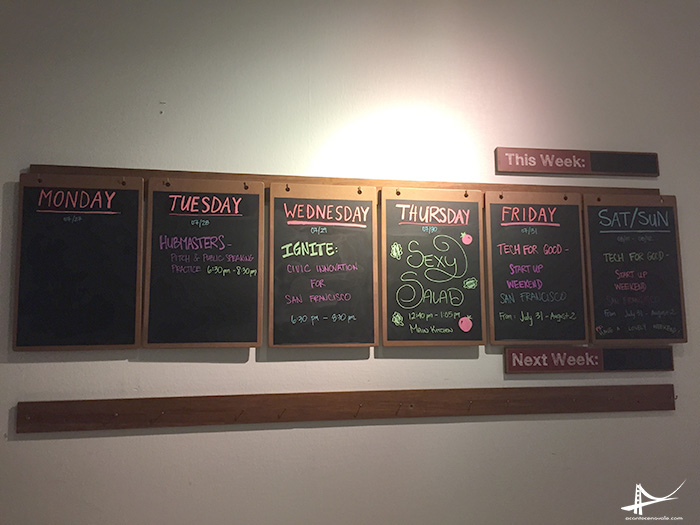 This Week:
MONDAY
07/27
TUESDAY
07/28
HUBMASTER'S -
PITCH & PUBLIC SPEAKING
PRACTICE 6:30pm - 8:30pm
WEDNESDAY
07/29
IGNITE:
CIVIC INNOVATION
FOR
SAN FRANCISCO
6:30 pm - 8:30pm
THURSDAY
07/30
SEXY
SALAD
12:40 pm - 1:05 pm
MAIN KITCHEN
FRIDAY
07/31
TECH FOR GOOD -
START UP
WEEKEND
SAN FRANCISCO
From: July 31 - August 2
SAT/SUN
TECH FOR GOOD -
START UP
WEEKEND
SAN FRANCISCO
From: July 31 - August 2
HAVE A LOVELY WEEKEND!
Next Week:
acontecenovale.com